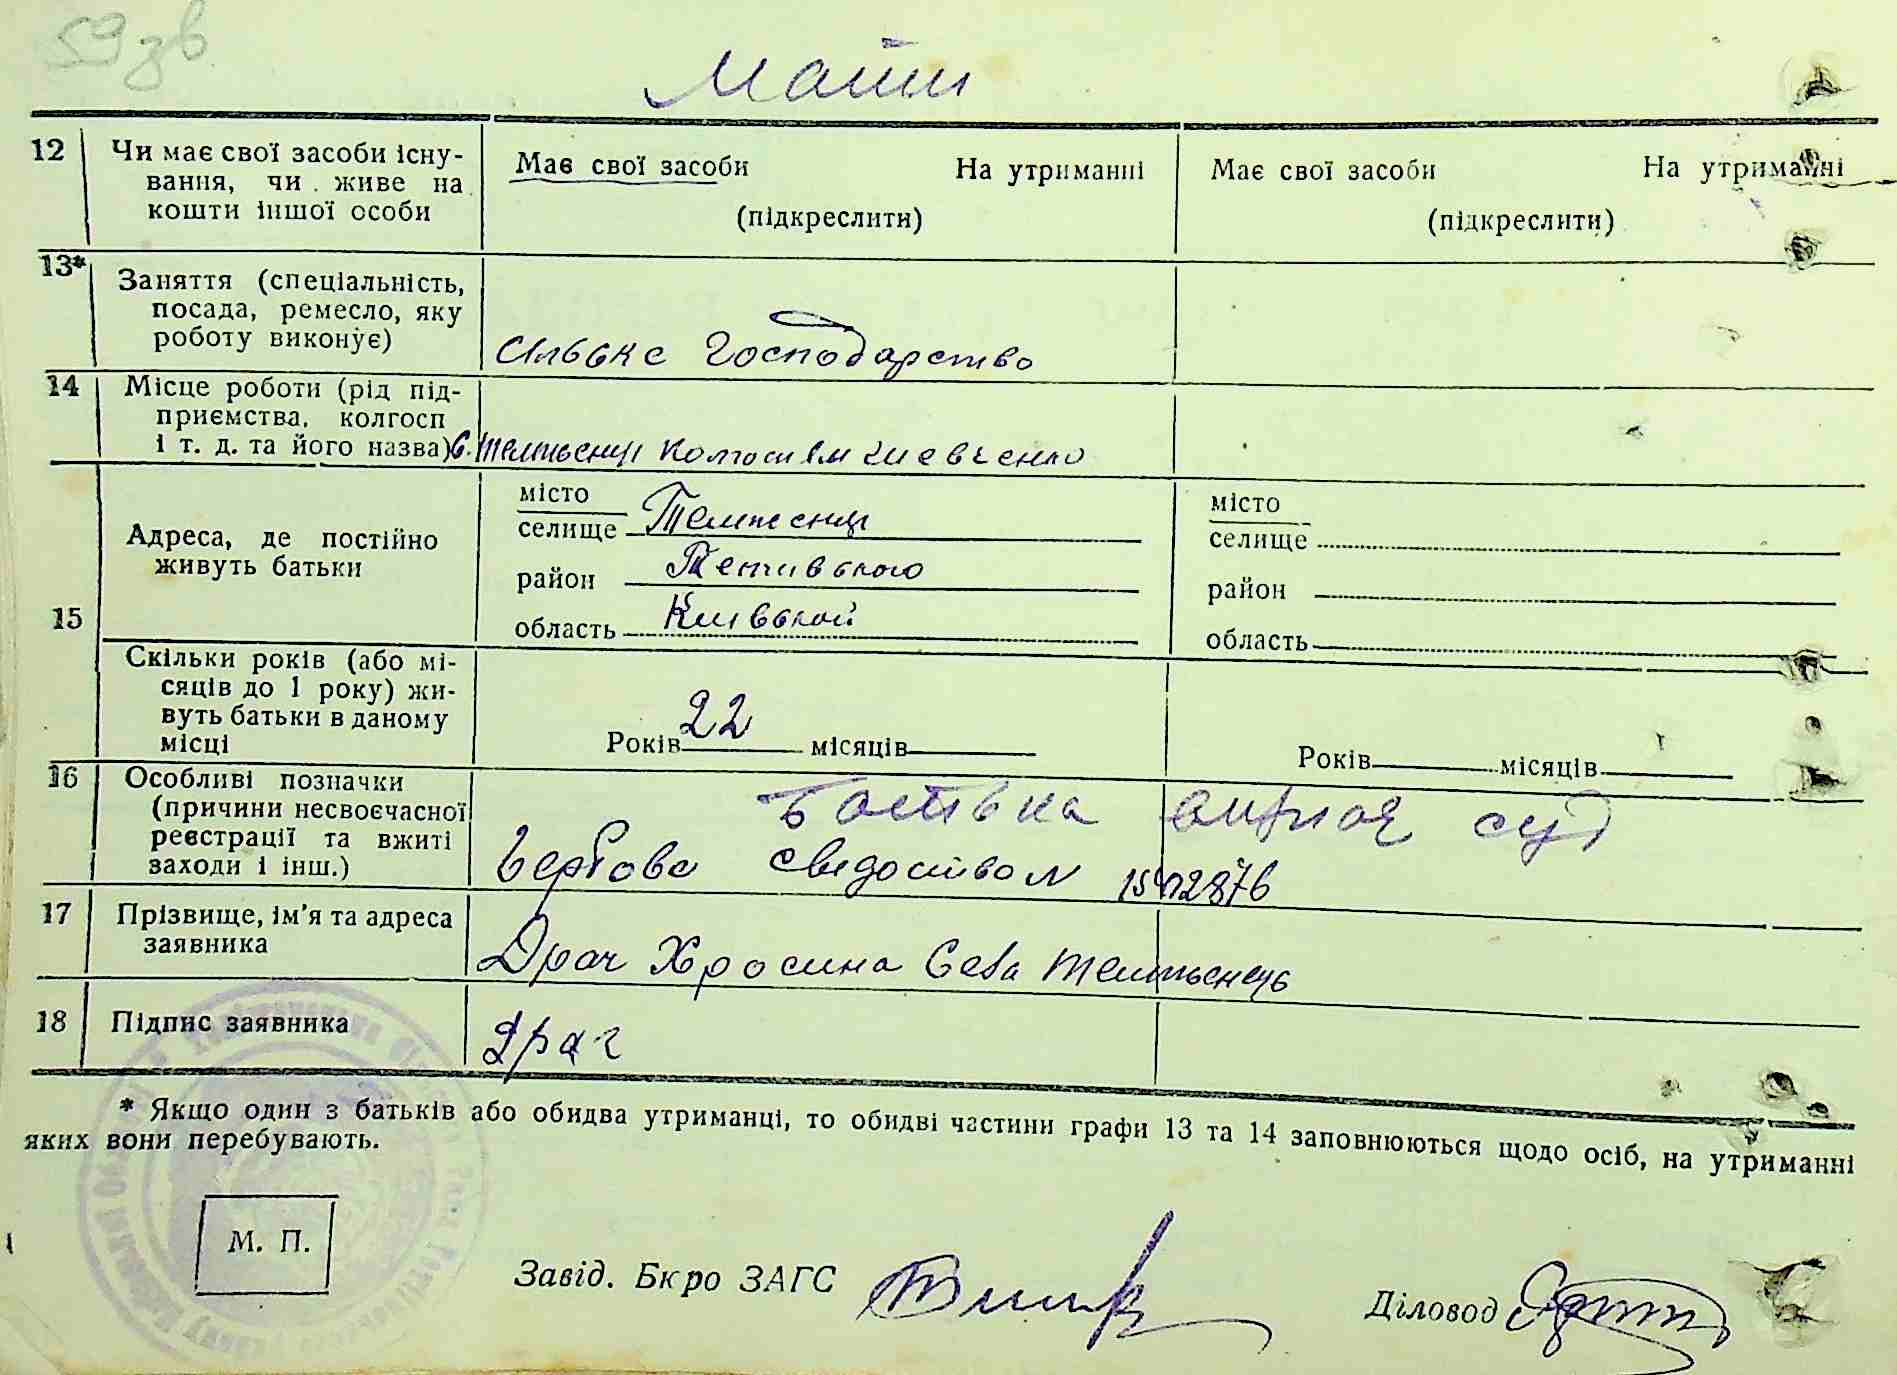 59 зв
Мати
12 Чи має свої засоби існу-
вання, чи живе на
кошти іншої особи
Має свої засоби На утриманні
(підкреслити)
Має свої засоби На утриманні
(підкреслити)
13* Заняття (спеціальність,
посада, ремесло, яку
роботу виконує)
Сільске Господарство
14 Місце роботи (рід під-
приємства, колгосп
і т. д. та його назва)
15 Адреса, де постійно
живуть батьки
місто
селище
район
область Київської
місто
селище
район
область
Скільки років (або мі-
сяців до 1 року) жи-
вуть батьки в даному
місці
Років 22 місяців
Років місяців
16 Особливі позначки
(причини несвоєчасної
реєстрації та вжиті
заходи і інш.)
Гербове свидоство №
17 Прізвище, ім'я та адреса
заявника
Драч Хросина Села
18 Підпис заявника
Драч
* Якщо один з батьків або обидва утриманці, то обидві частини графи 13 та 14 заповнюються щодо осіб, на утриманні
яких вони перебувають.
М. П.
Завід. Бюро ЗАГС
Діловод